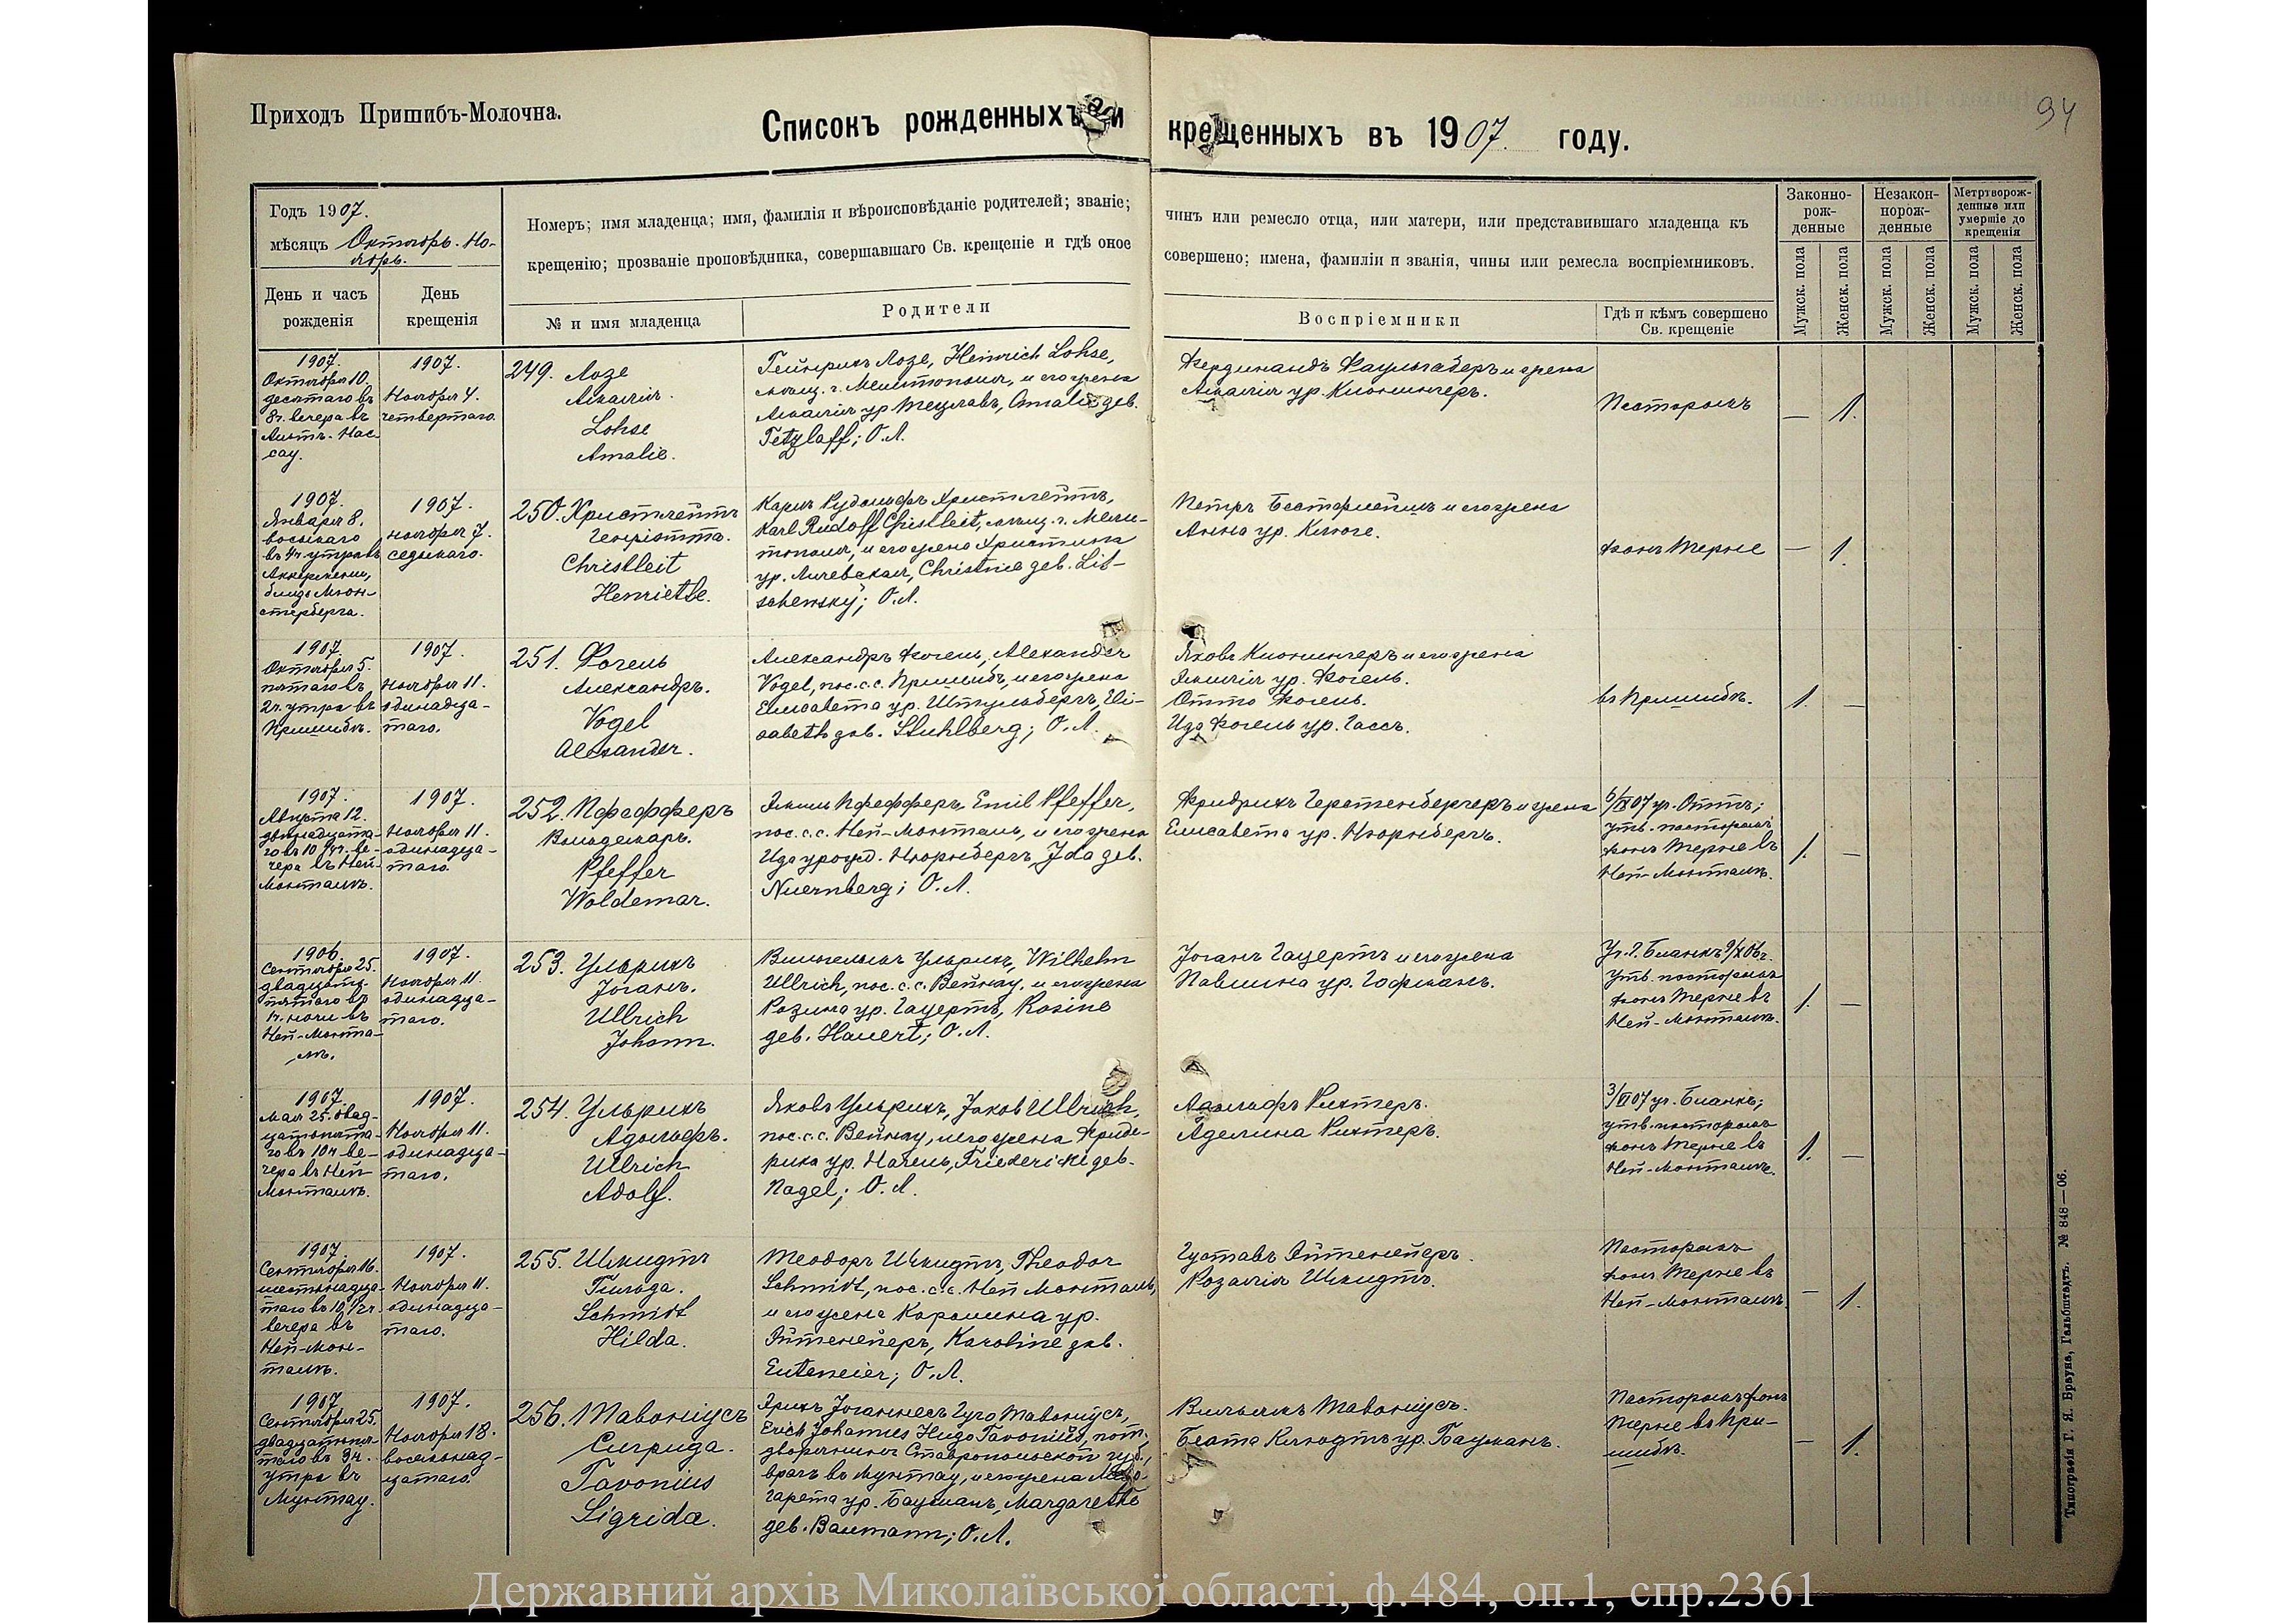 Приходъ Пришибъ-Молочна.
94
Списокъ рожденныхъ и крещенныхъ въ 1907 году.
Годъ 1907.
мѣсяцъ Октябрь. Но-
ябрь.
День и часъ
рожденія
День
крещенія
Номеръ; имя младенца; имя, фамилія и вѣроисповѣданіе родителей; званіе; чинъ или ремесло отца, или матери, или представившаго младенца къ
крещенію; прозваніе проповѣдника, совершавшаго Св. крещеніе и гдѣ оное совершено; имена, фамиліи и званія, чины или ремесла воспріемниковъ.
№ и имя младенца
Родители
Воспріемники
Гдѣ и кѣмъ совершено
Св. крещеніе
Законно-
рож-
денные
Незакон-
норож-
денные
Метрворож-
денные или
умершіе до
крещенія
Мужск. пола
Женск. пола
Мужск. пола
Женск. пола
Мужск. пола
Женск. пола
1907.
Октября 10.
десятаго въ
8 ч. вечера въ
Альтъ-Нас-
сау.
1907.
Ноября 4.
четвертаго.
249. Лозе
Амалія.
Lohse
Amalie.
Гейнрихъ Лозе, Heinrich Lohse,
мѣщ. г. Мелитополя, и его жена
Амалія ур. Тецлавъ, Amalie geb.
Tetzlaff; О.Л.
Фердинандъ Фаульгаберъ и жена
Амалія ур. Кионингеръ.
Пасторомъ
— 1.
1907.
Января 8.
восьмаго
въ 4 ч. утра въ
Аккерменъ,
близъ Мюн-
стерберга.
1907.
ноября 7.
седьмаго.
250. Христлейтъ
Генріэтта.
Christleit
Henriette.
Карлъ Рудольфъ Христлейтъ,
Karl Rudolf Christleit, мѣщ. г. Мели-
тополя, и его жена Христина
ур. Личевская, Christine geb. Lit-
schewsky; О.Л.
Петръ и его жена
Анна ур. Клюге.
фонъ Терне
— 1.
1907.
Октября 5.
пятаго въ
2 ч. утра въ
Пришибѣ.
1907.
Ноября 11.
одинадца-
таго.
251. Фогель
Александръ.
Vogel
Alexander.
Александръ Фогель, Alexander
Vogel, пос. с.с. Пришибъ, и его жена
Елисавета ур. Штульбергъ, Eli-
sabeth geb. Stuhlberg; О.Л.
Яковъ Кионингеръ и его жена
Эмилія ур. Фогель.
Отто Фогель.
Ида Фогель ур. Гассъ.
въ Пришибѣ.
1. —
1907.
Августа 12.
двѣнадцата-
го въ 10 ½ ч. ве-
чера въ Ней-
Монталѣ.
1907.
Ноября 11.
одинадца-
таго.
252. Пфефферъ
Вольдемаръ.
Pfeffer
Woldemar.
Эмиль Пфефферъ, Emil Pfeffer,
пос. с.с. Ней-Монталь, и его жена
Ида урожд. Нюрнбергъ, Ida geb.
Nuernberg; О.Л.
Фридрихъ Герстенбергеръ и жена
Елисавета ур. Нюрнбергъ.
6/IX 07 уч. Оттъ;
утв. пасторомъ
фонъ Терне въ
Ней-Монталѣ.
1. —
1906.
Сентября 25.
двадцать
пятаго въ
1 ч. ночи въ
Ней-Монта-
лѣ.
1907.
Ноября 11.
одинадца-
таго.
253. Ульрихъ
Іоганъ.
Ullrich
Johann.
Вильгельмъ Ульрихъ, Wilhelm
Ullrich, пос. с.с. Вейнау, и его жена
Розина ур. Гауертъ, Rosine
geb. Hauert; О.Л.
Іоганъ Гауертъ и его жена
Павлина ур. Гофманъ.
Уч. Г. Бланкъ 9/X 06 г.
утв. пасторомъ
фонъ Терне въ
Ней-Монталѣ.
1. —
1907.
Мая 25. двад-
цатопята-
го въ 10 ч. ве-
чера въ Ней
Монталѣ.
1907.
Ноября 11.
одинадца-
таго.
254. Ульрихъ
Адольфъ.
Ullrich
Adolf.
Яковъ Ульрихъ, Jakob Ullrich,
пос. с.с. Вейнау, и его жена Фриде-
рика ур. Нагель, Friederike geb.
Nagel; О.Л.
Адольфъ Рихтеръ.
Аделина Рихтеръ.
3/VI 07 уч. Бланкъ;
утв. пасторомъ
фонъ Терне въ
Ней-Монталѣ.
1. —
1907.
Сентября 16.
шестнадца-
таго въ 10 ½ ч.
вечера въ
Ней-Мон-
талѣ.
1907.
Ноября 11.
одинадца-
таго.
255. Шмидтъ
Гильда.
Schmidt
Hilda.
Теодоръ Шмидтъ, Theodor
Schmidt, пос. с.с. Ней Монталь,
и его жена Каролина ур.
Эйтенейеръ, Karoline geb.
Euteneier; О.Л.
Густавъ Эйтенейеръ.
Розалія Шмидтъ.
Пасторомъ
фонъ Терне въ
Ней-Монталѣ.
— 1.
1907.
Сентября 25.
двадцатопя-
таго въ 9 ч.
утра въ
Мунтау.
1907.
Ноября 18.
восемьнад-
цатаго.
256. Тавоніусъ
Сигрида.
Tavonius
Sigrida.
Эрихъ Іоганнесъ Гуго Тавоніусъ,
Erich Johannes Hugo Tavonius, пот.
дворянинъ Ставропольской губ.,
врачъ въ Мунтау, и его жена Мар-
гарета ур. Бауманъ, Margarethe
geb. Baumann; О.Л.
Вильямъ Тавоніусъ.
Беата Клюдтъ ур. Бауманъ.
Пасторомъ фонъ
Терне въ При-
шибѣ.
— 1.
Типографія Г. Я. Брауна, Гальбштадтъ. № 848—06.
Державний архів Миколаївської області, ф.484, оп.1, спр.2361